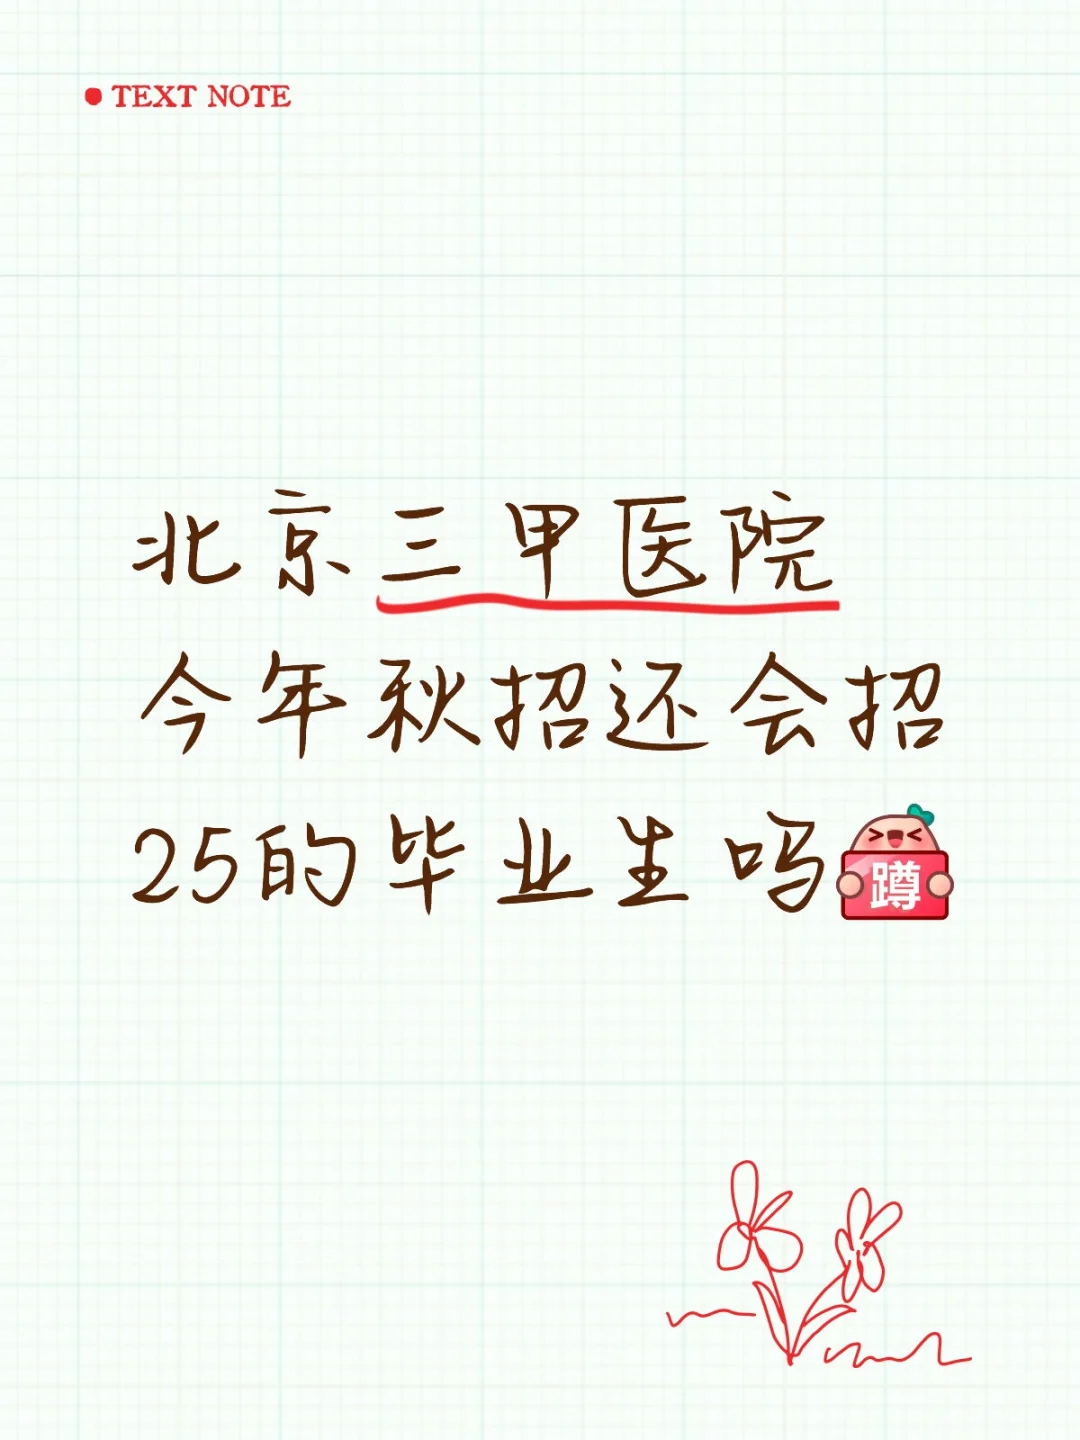 TEXT NOTE
北京三甲医院
今年秋招还会招
25的毕业生吗蹲